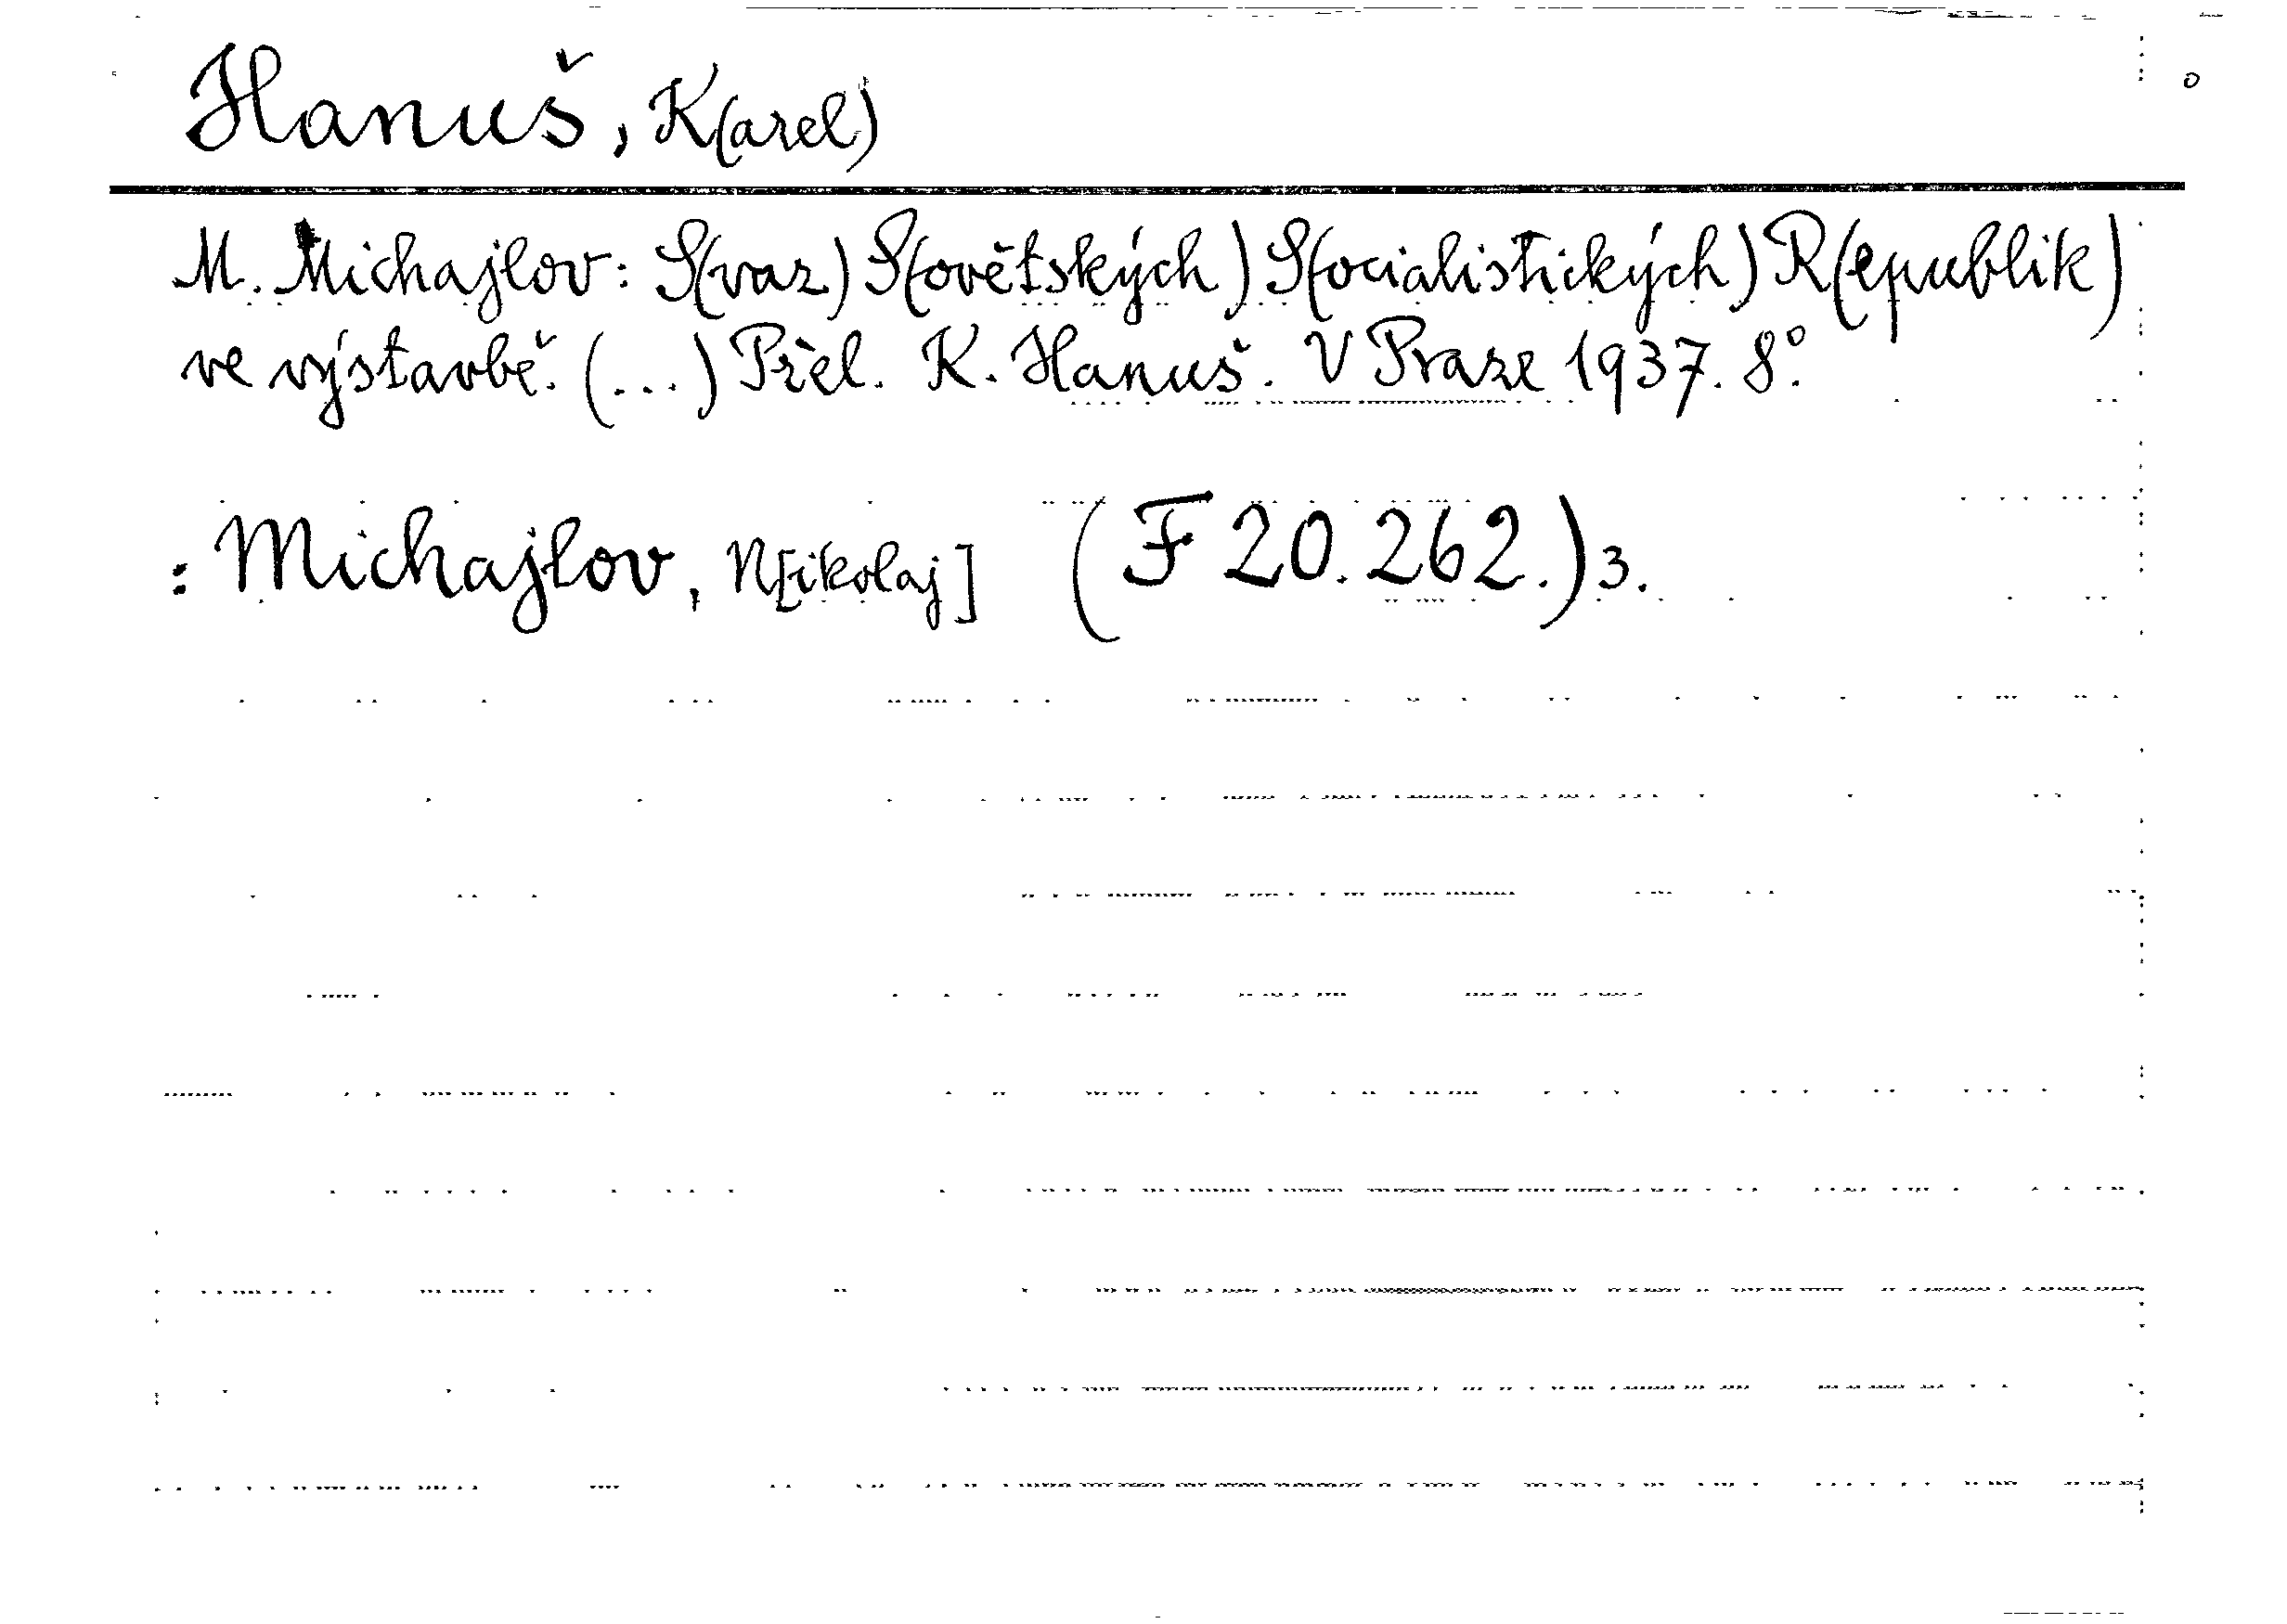 Hanuš, K(arel)
M. Michajlov: S(vaz) S(ovětských) S(ocialistických) R(epublik)
ve výstavbě. (...) Přel. K. Hanuš. V Praze 1937. 8°.
: Michajlov, N[ikolaj] (F 20.262.) 3.